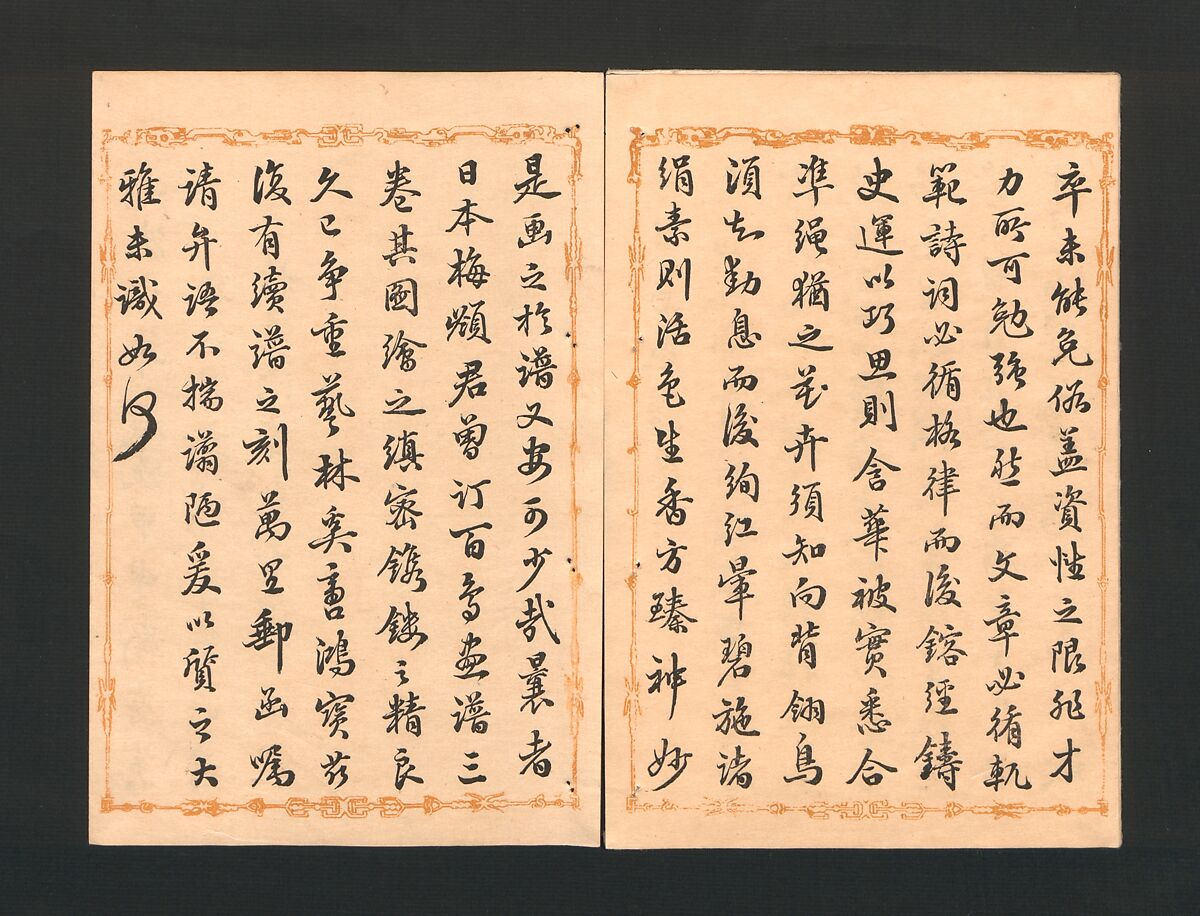 卒未能免俗盖資性之限非才
力所可勉強也然而文章必循軌
範詩词必循格律而後鎔經鑄
史運以巧思則含華被實悉合
準绳猶之花卉須知向背翎鳥
須知動息而後绚红暈碧施诸
绢素则活色生香方臻神妙
是画之於譜又安可少哉曩者
日本梅嶺君曽订百鳥画譜三
卷其圖繪之縝密鐫鏤之精良
久已争重藝林奚啻鴻寳茲
復有續譜之刻萬里郵函嘱
请弁语不揣譾陋爰以質之大
雅未識如何